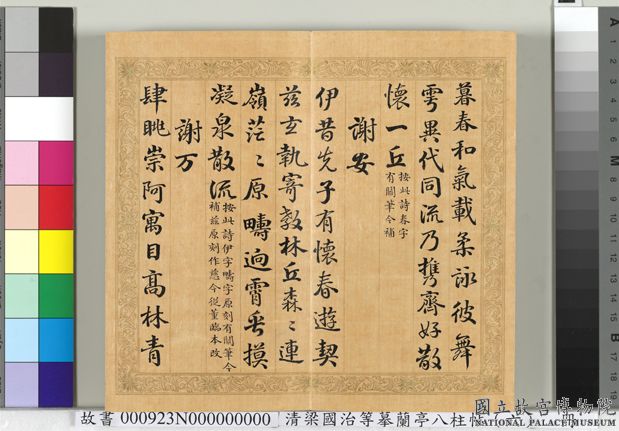 暮春和氣載柔詠彼舞
雩異代同流乃携齊好散
懷一丘按此詩春字
有闕筆今補
謝安
伊昔先子有懷春遊契
茲玄執寄敖林丘森〻連
嶺茫〻原疇逈霄垂
凝泉散流按此詩伊字疇字原刻有闕筆今
補茲原刻作慈今從董臨本改
謝万
肆眺崇阿寓目高林青
故書 000923N000000000 清梁國治等摹蘭亭八柱帖
國立故宮博物院
NATIONAL PALACE MUSEUM